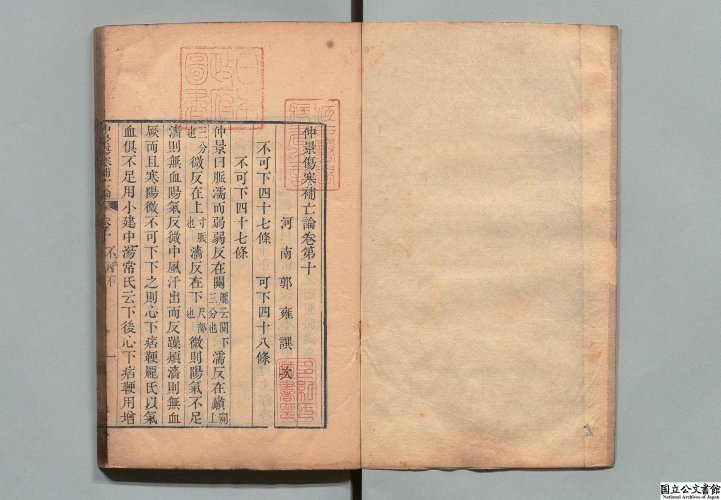 仲景傷寒補亡論卷第十
河南郭雍譔次
不可下四十七條　可下四十八條
不可下四十七條
仲景曰脈濡而弱弱反在關濡反在巔龐云關下三分也關上
三分也微反在上寸脈也濇反在下尺部也微則陽氣不足
濇則無血陽氣反微中風汗出而反躁煩濇則無血
厥而且寒陽微不可下下之則心下痞鞕龐氏以氣
血俱不足用小建中湯常氏云下後心下痞鞕用增
仲景傷寒補亡論
日本政府圖書
国立公文書館
National Archives of Japan